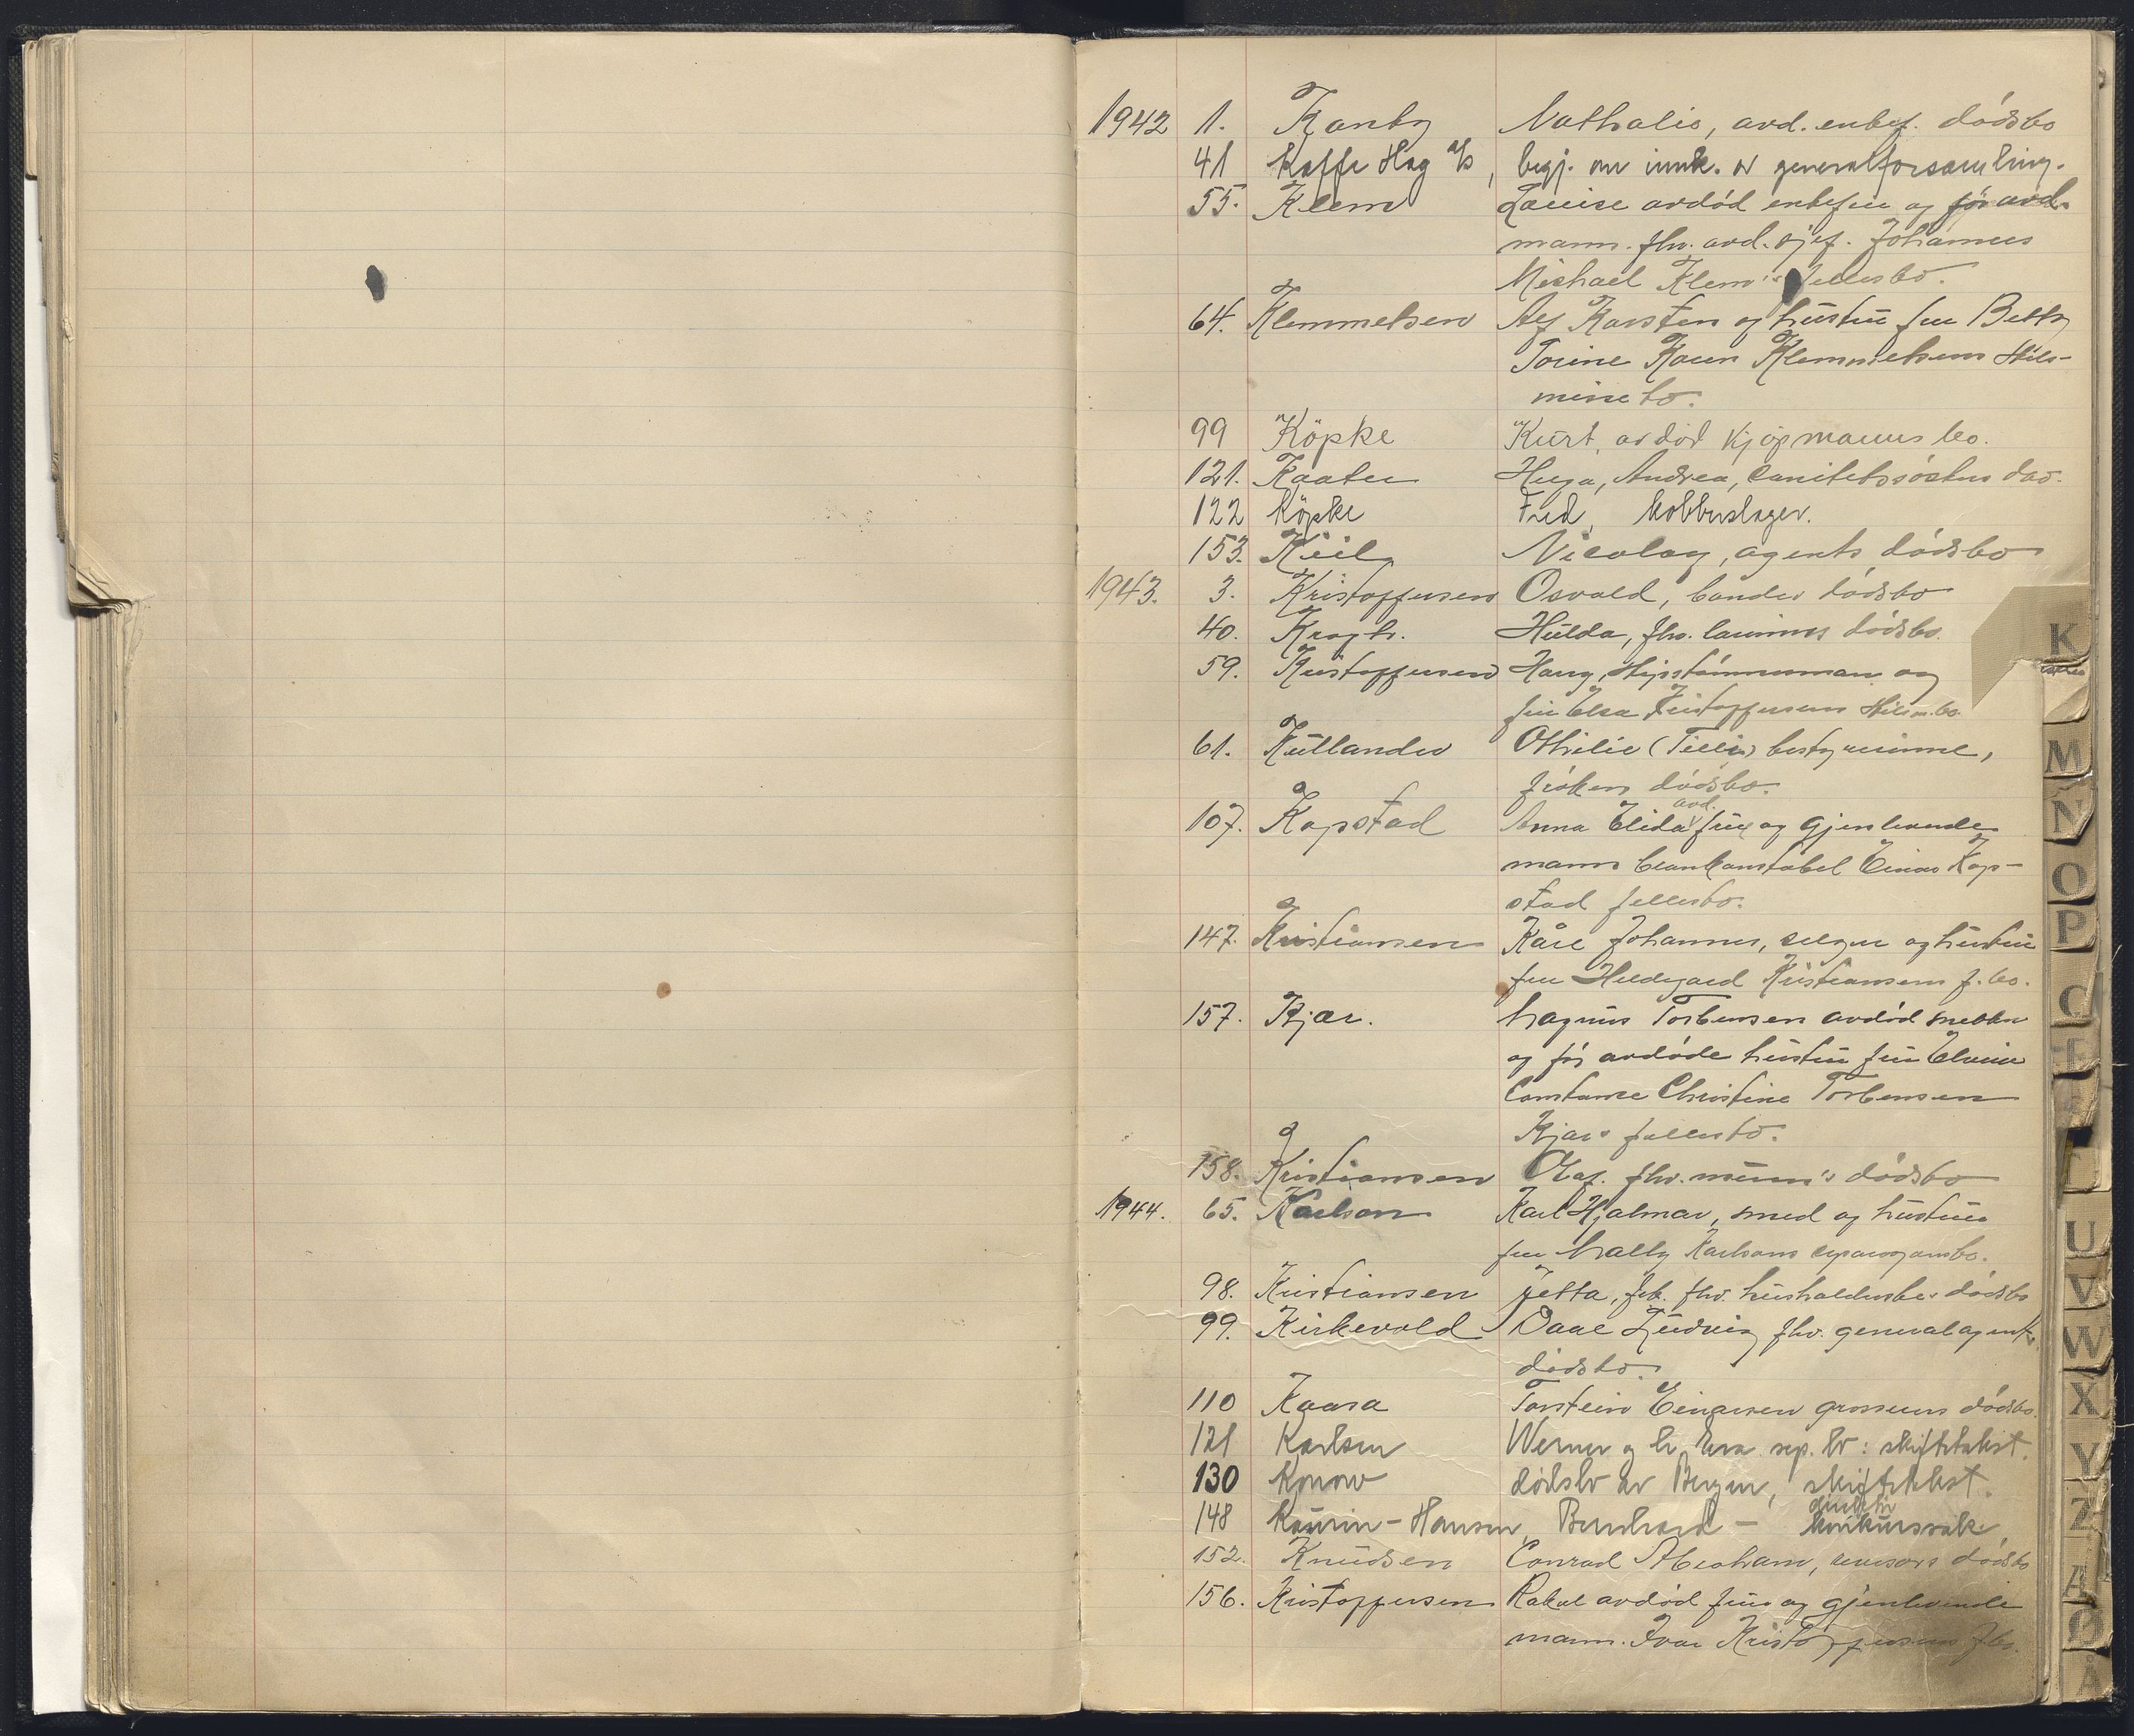 1942 1. Kanby Nathalie, avd. enkef. dödsbo
41 Kaffe Hag a/s, begj. om innk. av generalforsamling.
55. Klem Louise avdöd enkefru og för avd.
mann. fhv. avd. sjef. Johannes
Michael Klem's fellesbo.
64. Klemmetsen Alf Karsten og hustru fru Betty
Torine Klemmetsens skils-
misse bo.
99 Köpke Kurt, avdöd kjöpmanns bo.
121. Kaater Helga, Andrea, sanitetssösters dbo.
122 Köpke Fred, kobberslager.
153. Keil Nicolay, agents dödsbo
1943. 3. Kristoffersen Osvald, dödsbo
40. Krogh. Hulda, fhv. dödsbo.
59. Kristoffersen Harry, skipstömmermann og
fru Elsa Kristoffersens skilsm.bo.
61. Kullander Othilie (Tilly) bestyrerinne,
fröken dödsbo.
107. Kapstad Anna Elida avd. frue og gjenlevende
mann brankonstabel Einar Kap-
stad fellesbo.
147. Kristiansen Kåre Johannes, selger og hustru
fru Hildegard Kristiansens f.bo.
157. Kjær. Magnus Torbensen avdöd snekker
og för avdöde hustru fru
Constanse Christine Torbensen
Kjærs fellesbo.
158. Kristiansen Olaf. fhv. murer's dödsbo
1944. 65. Karlson Karl Hjalmar, smed og hustru
fru Mally Karlsons separasjonsbo.
98. Kristiansen Jetta, frk. fhv. husholderskes dödsbo
99. Kirkevold Daae Ludvig fhv. generalagents
dödsbo.
110 Kaasa Torstein Einarsen grosserers dödsbo.
121 Karlsen Werner og h. Eva sep. bo: skiftetakst.
130 Konow dödsbo av Bergen, skiftetakst.
148 Kaurin-Hansen, Bernhard – direktör konkurssak.
152. Knudsen Conrad Abraham, revisors dödsbo
156. Kristoffersen Rakel avdöd frue og gjenlevende
mann. Ivar Kristoffersens f.bo.
K
M
N
O
P
U
V
W
X
Y
Z
Ø